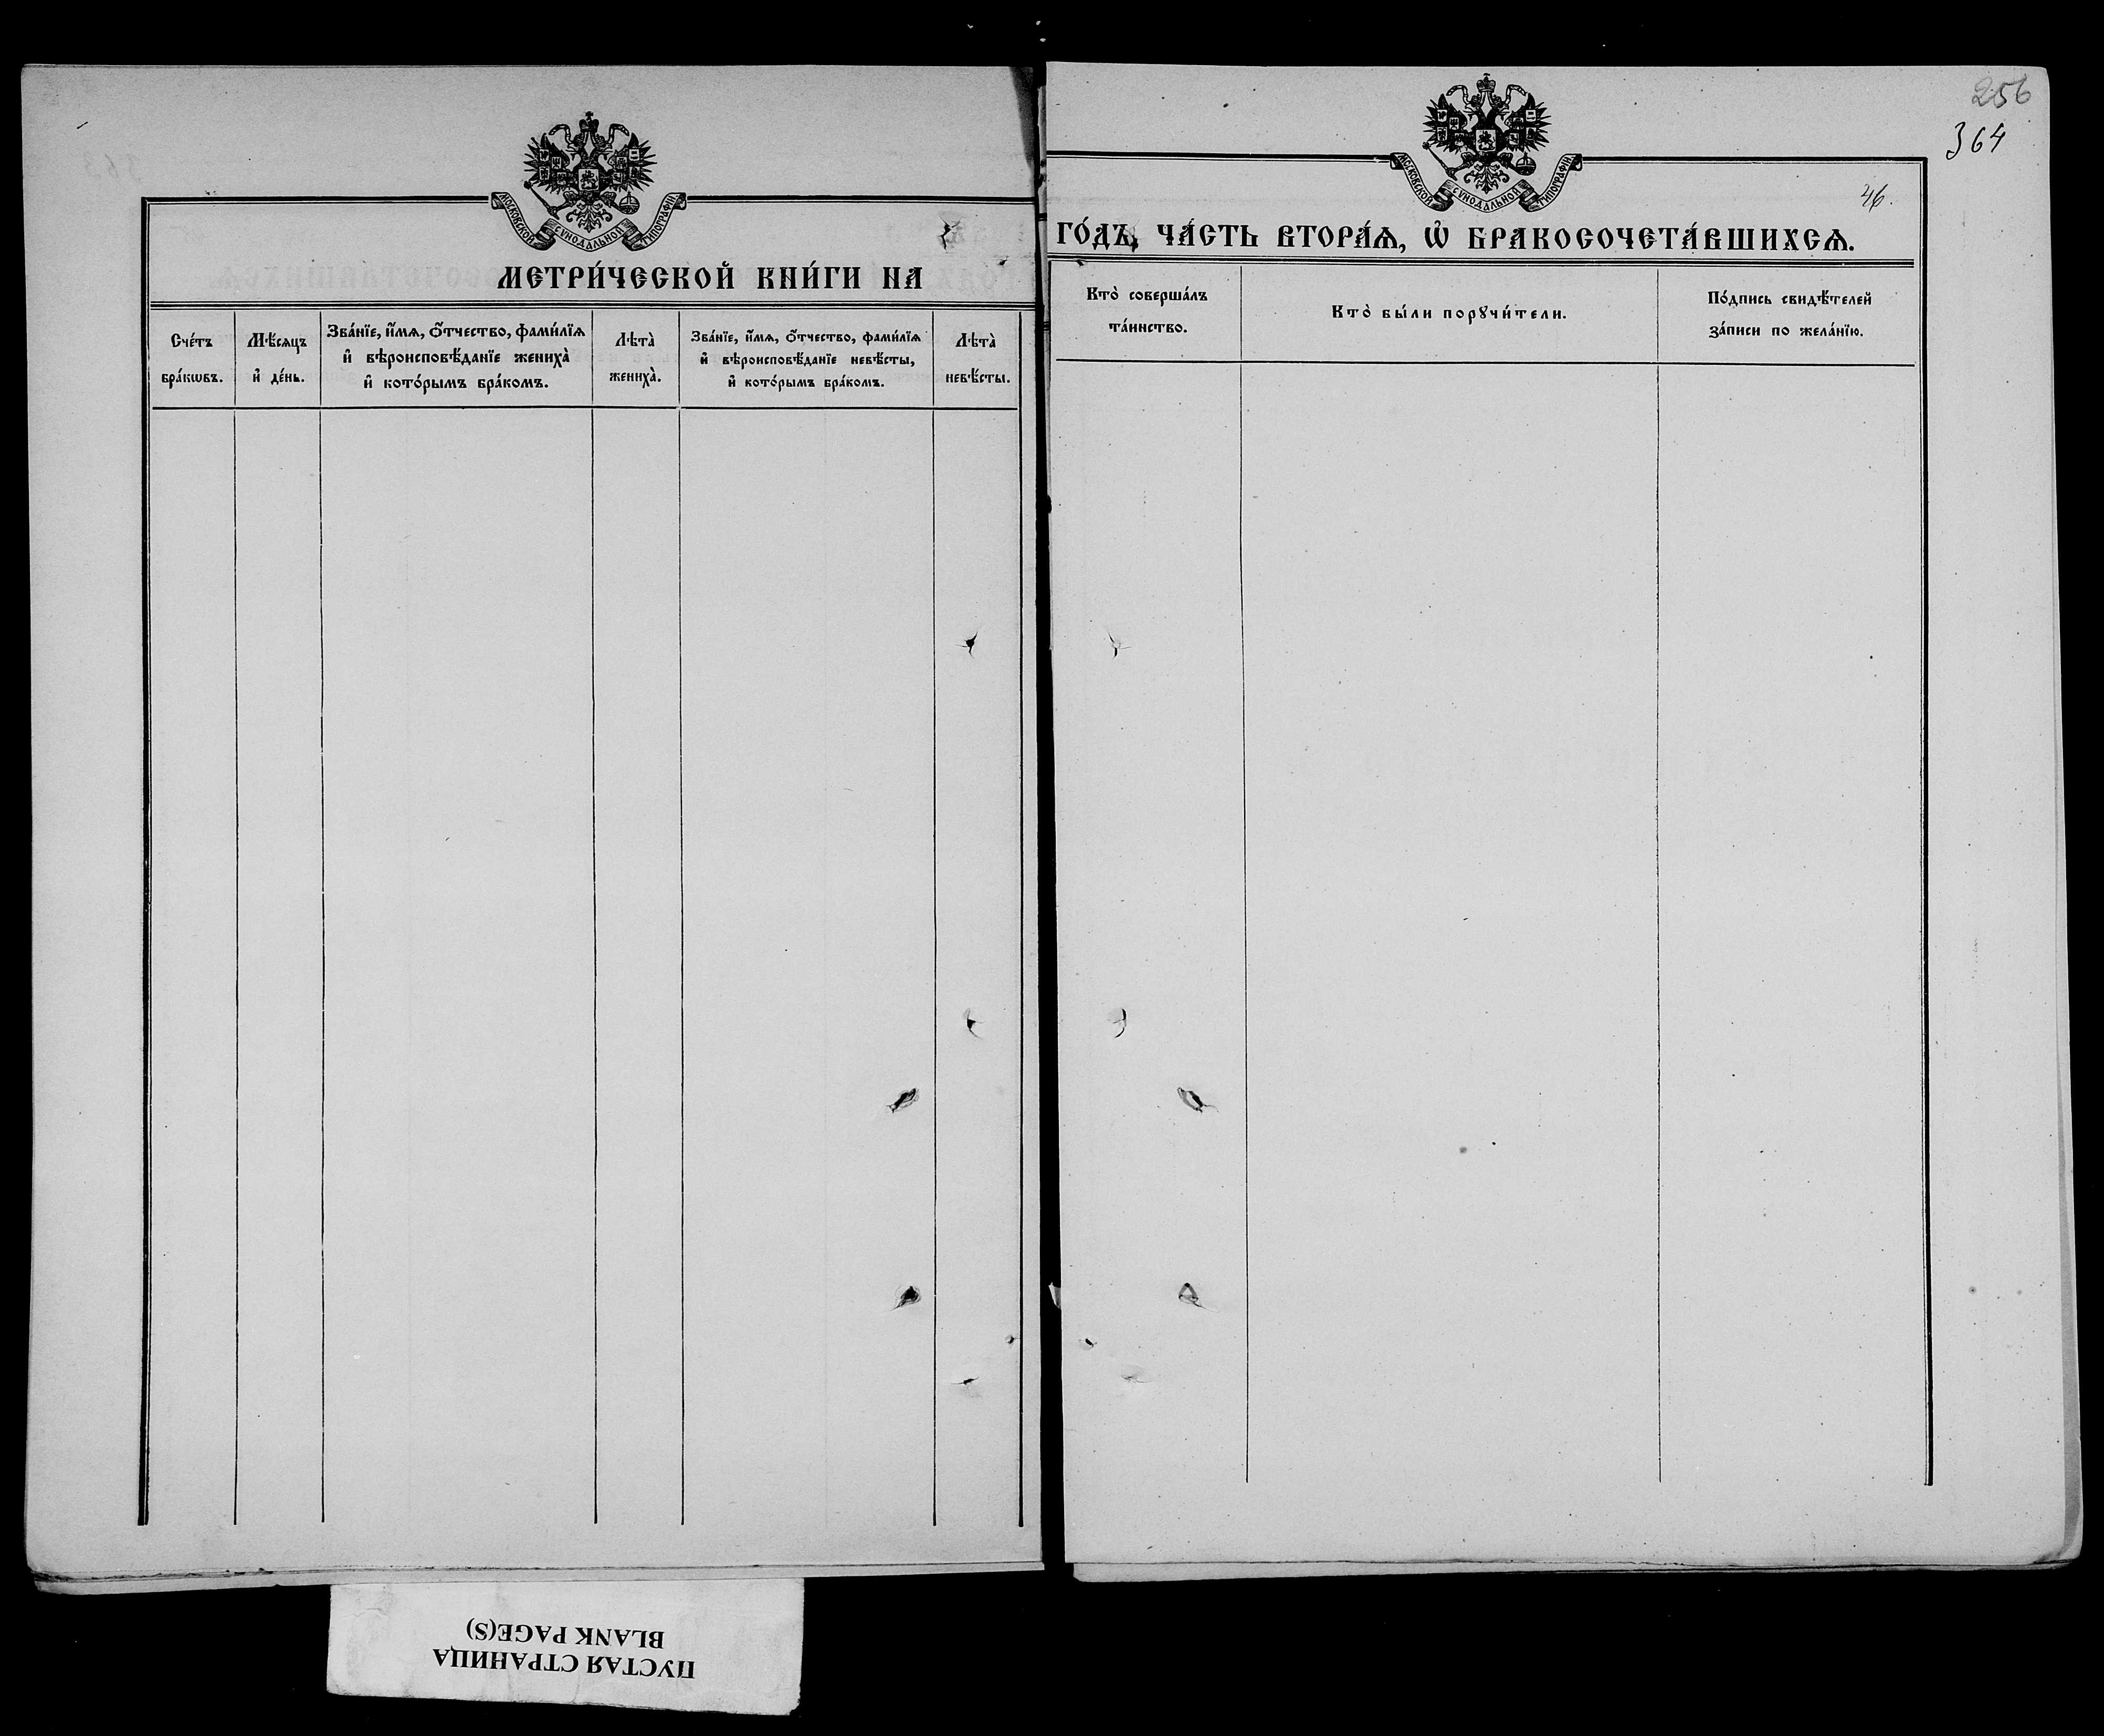 МОСКОВСКОЙ СѴНОДАЛЬНОЙ ТИПОГРАФІИ.
МЕТРИ́ЧЕСКОЙ КНИ́ГИ НА
Сче́тъ
бра́кѡвъ.
Мѣ́сяцъ
и҆ де́нь.
Зва́нїе, и҆́мѧ, ѻ҆́тчество, фами́лїѧ
и҆ вѣроисповѣ́данїе жениха̀
и҆ кото́рымъ бра́комъ.
Лѣта̀
жениха̀.
Зва́нїе, и҆́мѧ, ѻ҆́тчество, фами́лїѧ
и҆ вѣроисповѣ́данїе невѣ́сты,
и҆ кото́рымъ бра́комъ.
Лѣта̀
невѣ́сты.
256
364
МОСКОВСКОЙ СѴНОДАЛЬНОЙ ТИПОГРАФІИ.
46.
ГО́ДЪ, ЧА́СТЬ ВТОРА́Ѧ, Ѡ҆ БРАКОСОЧЕТА́ВШИХСѦ.
Кто̀ соверша́лъ
та́инство.
Кто̀ бы́ли порꙋчи́тели.
По́дпись свидѣ́телей
за́писи по жела́нїю.
ПУСТАЯ СТРАНИЦА
BLANK PAGE(S)